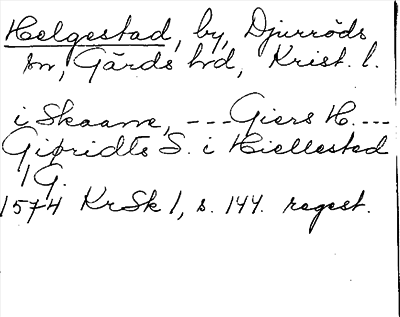 Helgestad, by, Djurröds
sn, Gärds hd, Krist. l.
i Skaane, --- Giers H. ---
Giøridts S. i Hiellested
1 G.
1574 KrSk 1, s. 144. regest.